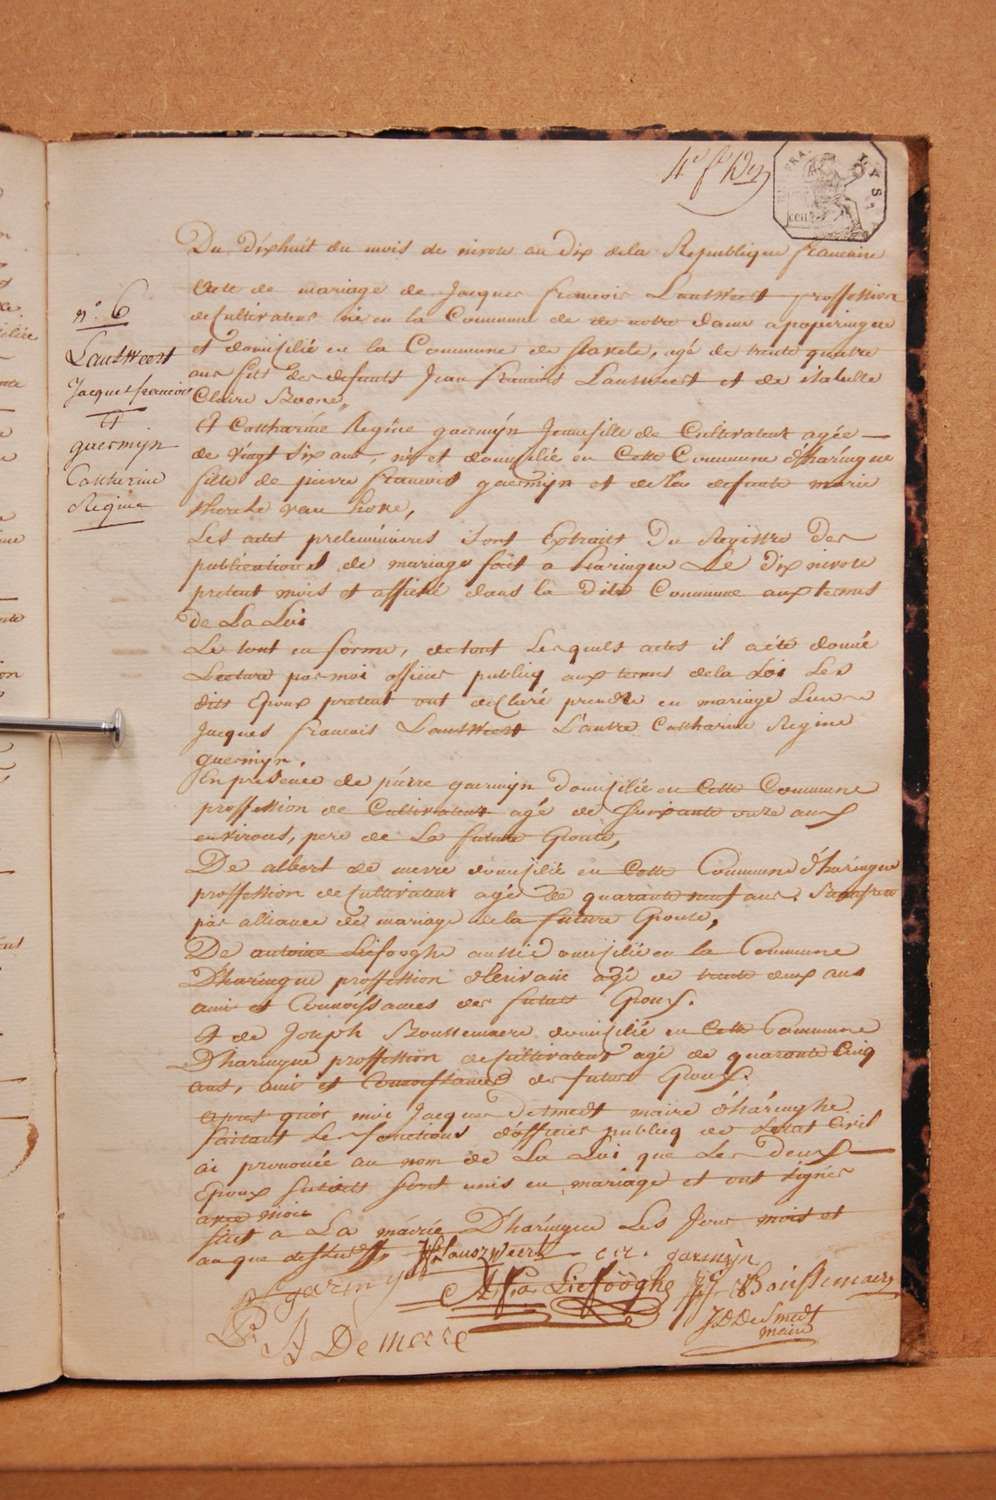 4e f. 12
Du dixhuit du mois de nivose an dix de la Republique francaise
n.o 6
Lauwreet
Jacque francois
et
guermyn
Catherine
Regine
Acte de mariage de Jacques francois Lauwreet proffession
de Cultivateur né en la Commune de de notre dame a poperingue
et domicilié en la Commune de stavele, agé de trente quatre
ans fils des defunts Jean francois Lauwreet et de isabelle
Claire Boone,
Et Catharine Regine guermÿn Jeune fille de Cultivateur agée
de vingt six ans, née et domicilié en Cette Commune d'haringue
fille de pierre francois guermÿn et de la defunte marie
therese van hove,
Les actes preleminaires sont Extraits du Registre des
publications de mariage fait a haringue Le dix nivose
present mois et affiché dans la dite Commune aux termes
de La Loi
Le tout en forme, de tout Lesquels actes il a été donné
Lecture par moi officier publiq aux termes de la Loi Les
dits Epoux present ont declaré prendre en mariage L'un
Jacques francois Lauwreet L'autre Catharine Regine
guermyn.
En presence de piérre guermyn domicilié en Cette Commune
proffession de Cultivateur agé de soixante onze ans
environs, pere de La future Epouse,
De albert de merre domicilié en Cette Commune d'haringue
proffession de Cultivateur agé de quarante neuf ans, Beaufrere
par alliance de mariage de la future Epouse,
De antoine Liefooghe aussi domicilié en la Commune
D'haringue proffession d'Ecrivain agé de trente deux ans
ami et Connoissances des futurs Epoux.
Et de Joseph Boussemaere domicilié en Cette Commune
D'haringue proffession de Cultivateur agé de quarante Cinq
ans, ami et Connoissances des futurs Epoux.
Apres quoi moi Jacques Desmedt maire d'haringhe
faisant Les fonctions d'officier publicq de L'etat Civil
ai prononcé au nom de La Loi que Les Deux
Epoux susdits sont unis en mariage et ont signés
avec moi
fait a La mairie D'haringue Les Jour mois et
an que dessus
J f Lauwreet c r. garmÿn
p garmyn A fra Liefooghe J Boussemaere
P A De merre
J D De Smedt
maire